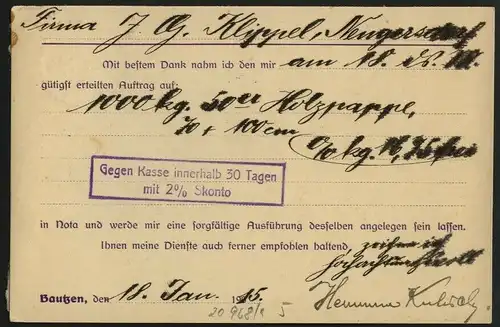 Firma J. G. Klippel, Neugersdorf
Mit bestem Dank nahm ich den mir am 18. ds. M.
gütigst erteilten Auftrag auf:
1000 kg. 50er Holzpappe,
70 + 100 cm
% kg. 16,75 frei
Gegen Kasse innerhalb 30 Tagen
mit 2% Skonto
in Nota und werde mir eine sorgfältige Ausführung desselben angelegen sein lassen.
Ihnen meine Dienste auch ferner empfohlen haltend, zeichne ich
hochachtungsvoll
Bautzen, den 18. Jan. 1915.